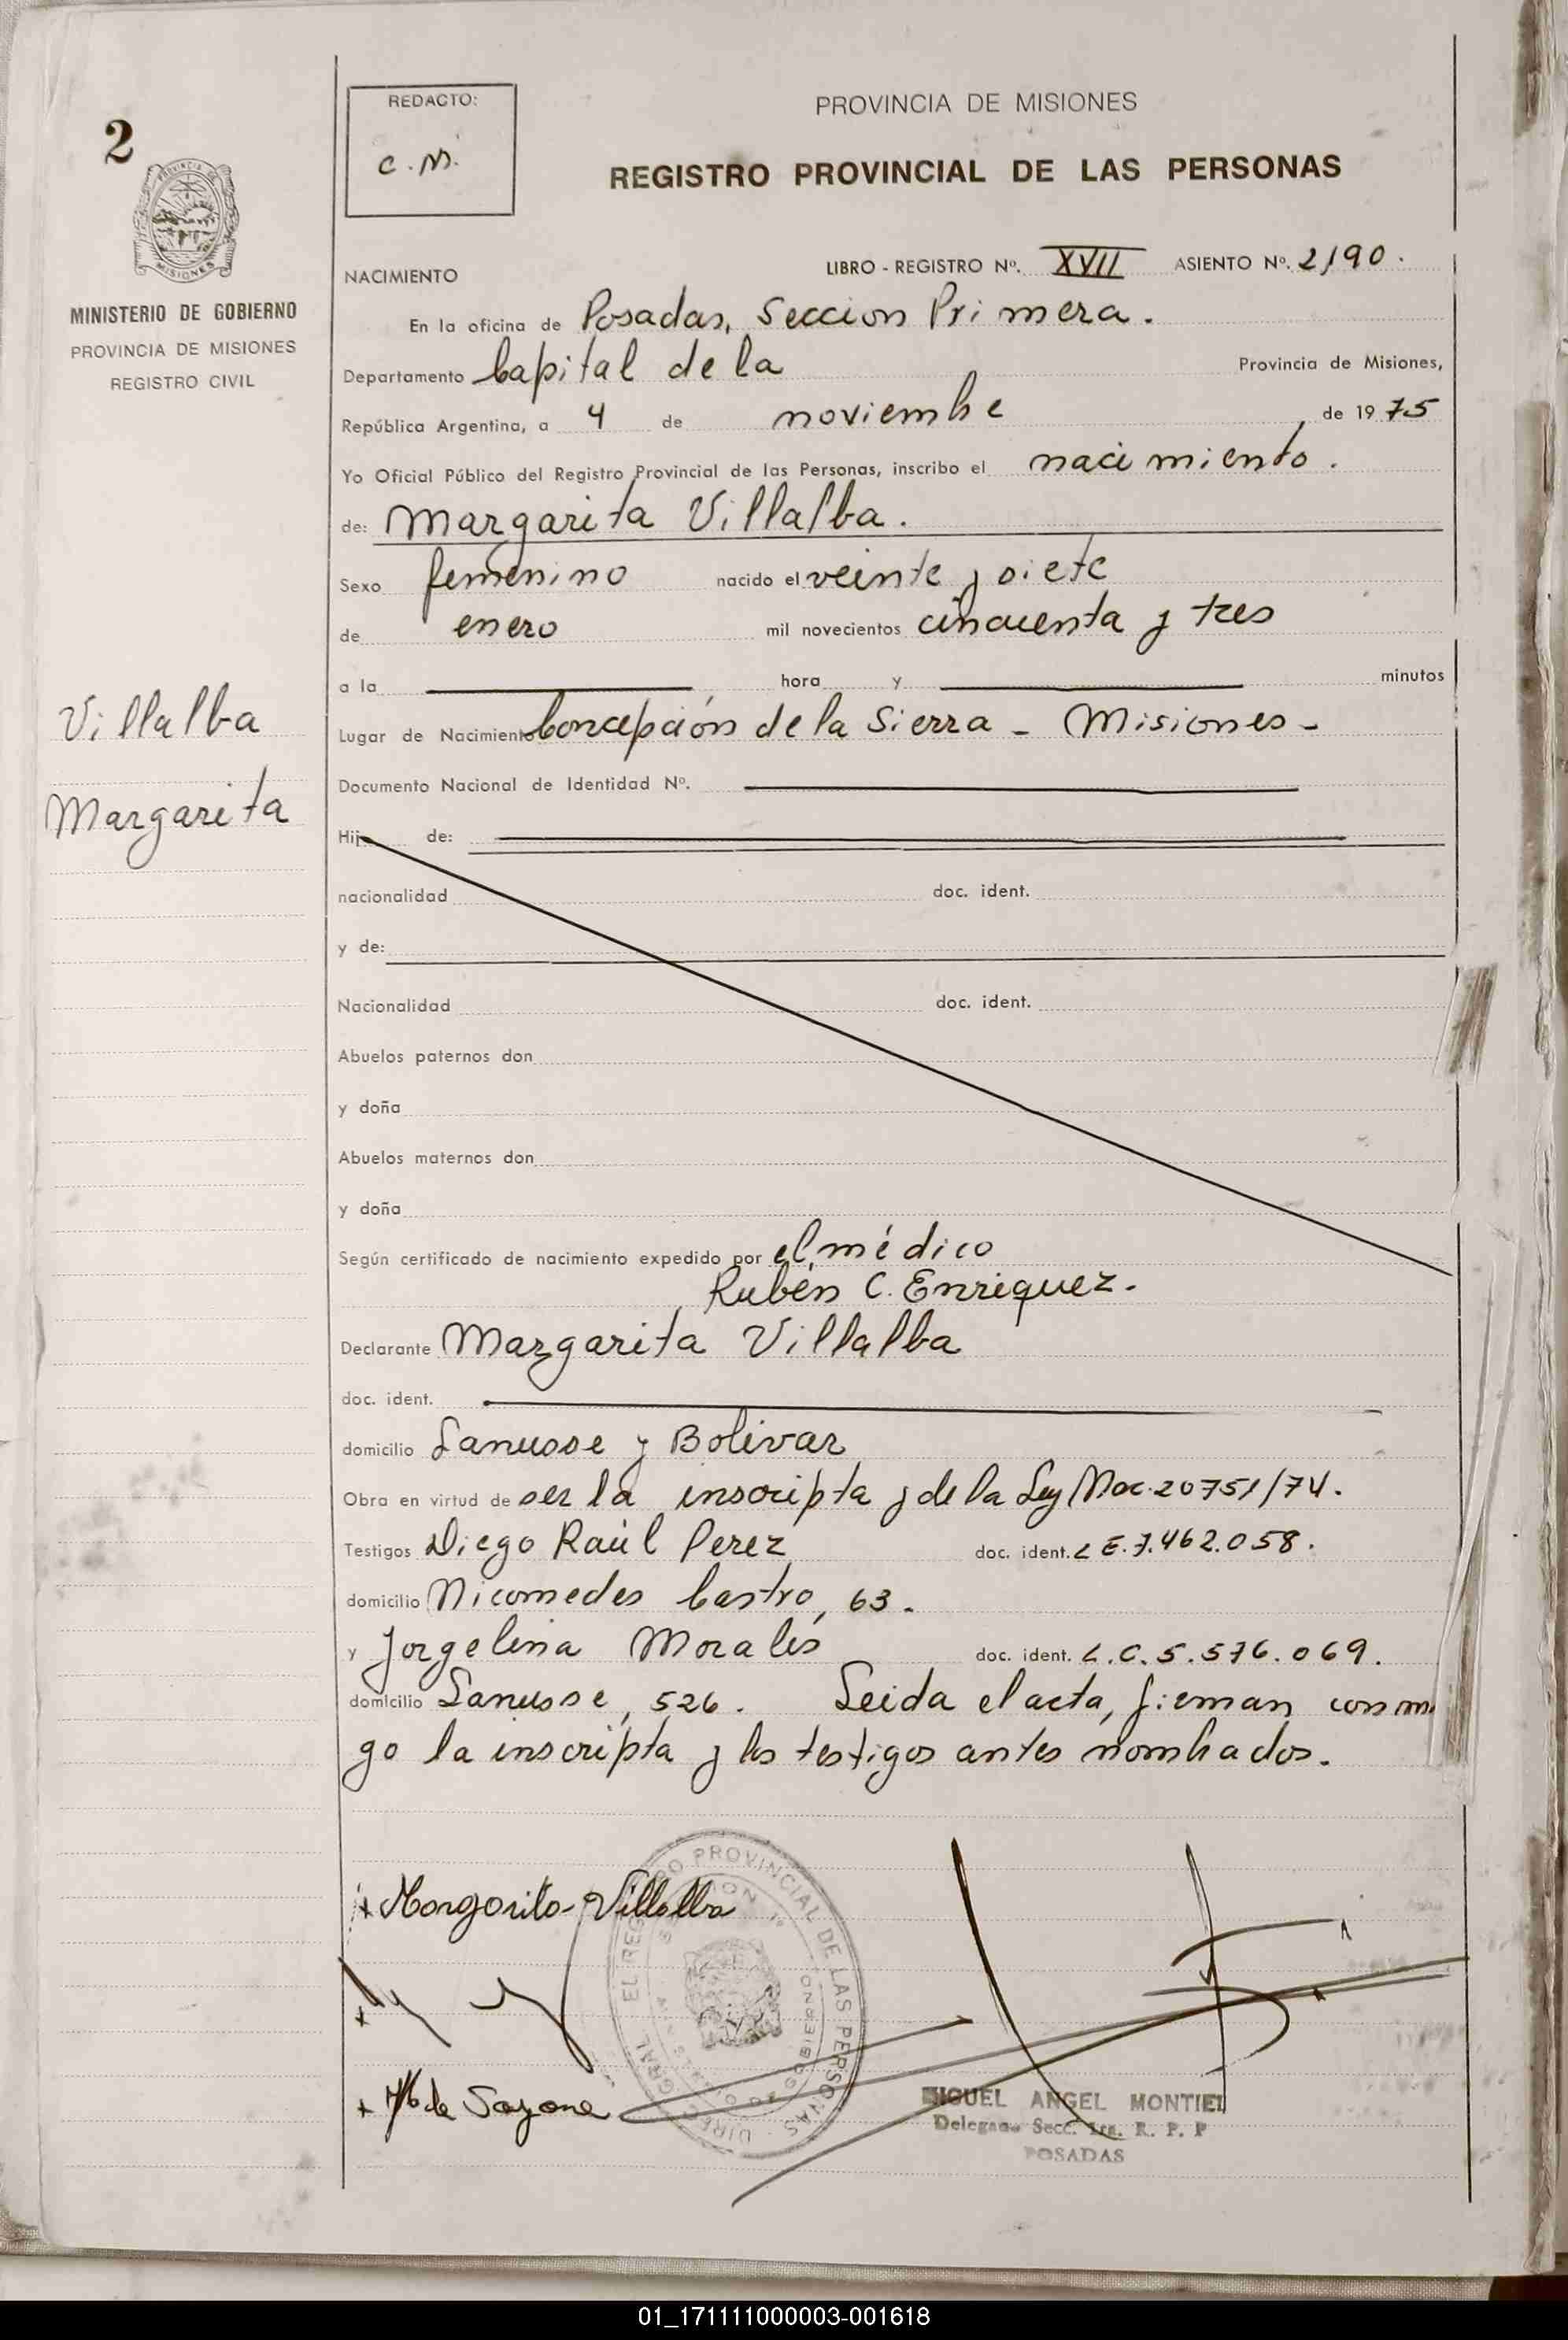 2
PROVINCIA DE
MISIONES
MINISTERIO DE GOBIERNO
PROVINCIA DE MISIONES
REGISTRO CIVIL
Villalba
Margarita
REDACTO:
C.M.
PROVINCIA DE MISIONES
REGISTRO PROVINCIAL DE LAS PERSONAS
NACIMIENTO LIBRO - REGISTRO Nº. XVII ASIENTO Nº. 2190.
En la oficina de Posadas, Seccion Primera.
Departamento Capital de la Provincia de Misiones,
República Argentina, a 4 de noviembre de 1975
Yo Oficial Público del Registro Provincial de las Personas, inscribo el nacimiento.
de: Margarita Villalba.
Sexo femenino nacido el veinte y siete
de enero mil novecientos cincuenta y tres
a la hora y minutos
Lugar de Nacimiento Concepción de la Sierra - Misiones -
Documento Nacional de Identidad Nº.
Hij de:
nacionalidad doc. ident.
y de:
Nacionalidad doc. ident.
Abuelos paternos don
y doña
Abuelos maternos don
y doña
Según certificado de nacimiento expedido por el médico
Rubén C. Enriquez.
Declarante Margarita Villalba
doc. ident.
domicilio Lanusse y Bolivar
Obra en virtud de ser la inscripta y de la Ley Nac. 20751/74.
Testigos Diego Raúl Perez doc. ident. L E. 7.462.058.
domicilio Nicomedes Castro, 63.
y Jorgelina Morales doc. ident. L.C. 5.576.069.
domicilio Lanusse, 526. Leida el acta, firman conmi
go la inscripta y los testigos antes nombrados.
Margarita Villalba
REGISTRO PROVINCIAL DE LAS PERSONAS
GOBIERNO
MIGUEL ANGEL MONTIEL
Delegado Secc. 1ra. R. P. P
POSADAS
01_171111000003-001618